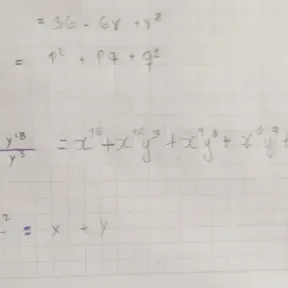 = 36 - 6y + y²
= p² + pq + q²
y¹⁸ / y³ = x¹⁵ + x¹²y³ + x⁹y⁶ + x⁶y⁹ +
² = x + y